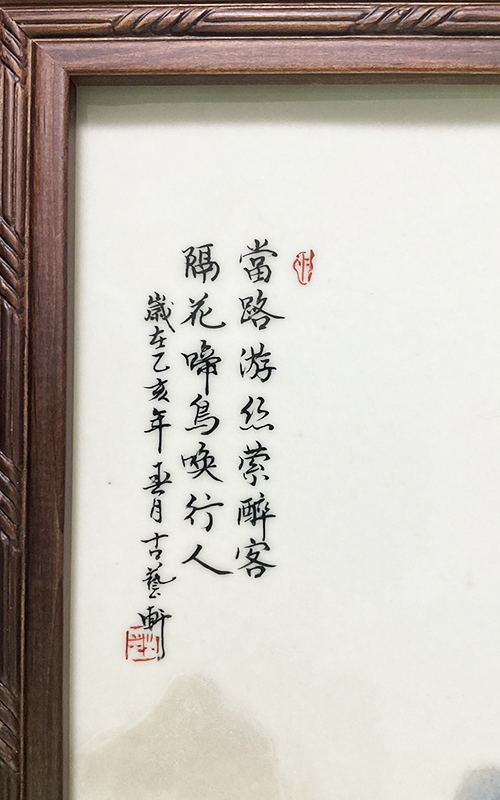 當路游丝萦醉客
隔花啼鳥唤行人
歲在乙亥年春月古藝軒